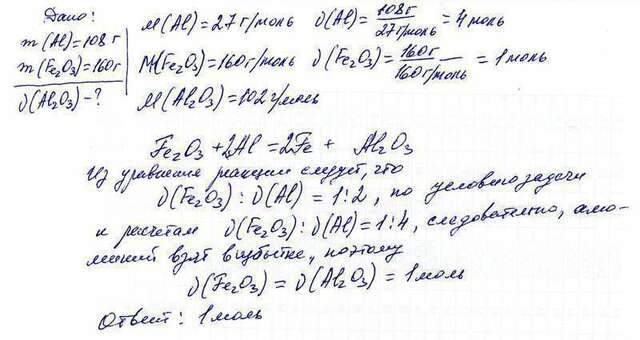 Дано:
m(Al)=108г
m(Fe₂O₃)=160г
ν(Al₂O₃)-?
M(Al)=27г/моль ν(Al)=108г/27г/моль=4моль
M(Fe₂O₃)=160г/моль ν(Fe₂O₃)=160г/160г/моль=1моль
M(Al₂O₃)=102г/моль
Fe₂O₃+2Al=2Fe+Al₂O₃
Из уравнения реакции следует, что
ν(Fe₂O₃):ν(Al)=1:2, по условию задачи
и расчетам ν(Fe₂O₃):ν(Al)=1:4, следовательно, алю-
миний взят в избытке, поэтому
ν(Fe₂O₃)=ν(Al₂O₃)=1моль
Ответ: 1моль